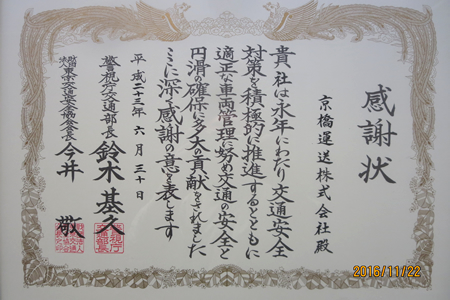 感謝状
京橋運送株式会社殿
貴社は永年にわたり交通安全
対策を積極的に推進するとともに
適正な車両管理に努め交通の安全と
円滑の確保に多大の貢献をされました
ここに深く感謝の意を表します
平成二十三年六月三十日
警視庁交通部長 鈴木基久
財団法人 東京交通安全協会会長 今井 敬
2016/11/22